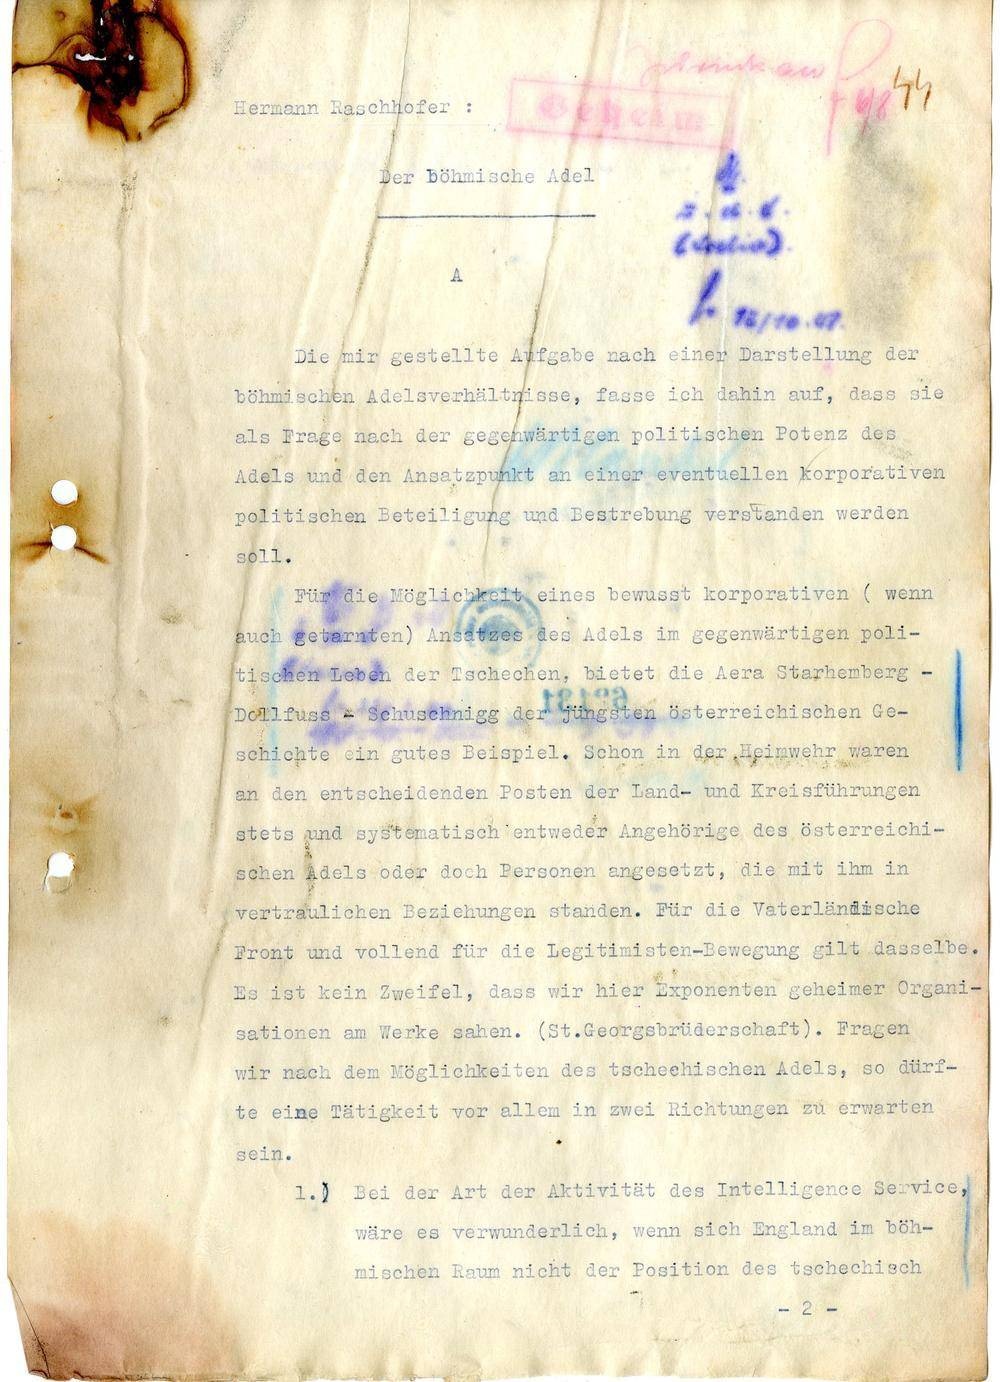 44
Hermann Raschhofer :
Geheim
Der böhmische Adel
A
Die mir gestellte Aufgabe nach einer Darstellung der
böhmischen Adelsverhältnisse, fasse ich dahin auf, dass sie
als Frage nach der gegenwärtigen politischen Potenz des
Adels und den Ansatzpunkt an einer eventuellen korporativen
politischen Beteiligung und Bestrebung verstanden werden
soll.
Für die Möglichkeit eines bewusst korporativen ( wenn
auch getarnten) Ansatzes des Adels im gegenwärtigen poli-
tischen Leben der Tschechen, bietet die Aera Starhemberg -
Dollfuss - Schuschnigg der jüngsten österreichischen Ge-
schichte ein gutes Beispiel. Schon in der Heimwehr waren
an den entscheidenden Posten der Land- und Kreisführungen
stets und systematisch entweder Angehörige des österreichi-
schen Adels oder doch Personen angesetzt, die mit ihm in
vertraulichen Beziehungen standen. Für die Vaterländische
Front und vollend für die Legitimisten-Bewegung gilt dasselbe.
Es ist kein Zweifel, dass wir hier Exponenten geheimer Organi-
sationen am Werke sahen. (St.Georgsbrüderschaft). Fragen
wir nach dem Möglichkeiten des tschechischen Adels, so dürf-
te eine Tätigkeit vor allem in zwei Richtungen zu erwarten
sein.
1.) Bei der Art der Aktivität des Intelligence Service,
wäre es verwunderlich, wenn sich England im böh-
mischen Raum nicht der Position des tschechisch
- 2 -